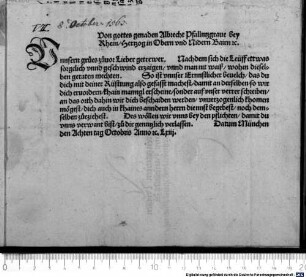 8. Octobris 1563
Von gottes genaden Albrecht Pfaltzgraue bey
Rhein, Hertzog in Obern vnd Nidern Bairn ꝛc.
Vnnsern grůes zůuor. Lieber getrewer. Nachdem sich die Leüff etwas
sorgclich vnnd geschwind erzaigen, vnnd man nit waist, wohin dieselben
hen geraten möchten. So ist vnnser Ernnstlicher beuelch, das du
dich mit deiner Rüsstung also gefasst machest, damit an derselben so wir
dich eruordern, khain manngl erscheine, sonder auf vnser verrer schreiben,
an das orth dahin wir dich beschaiden werden, vnuerzogenlich khomen
mögst, auch dich in khains anndern herrn diennst begebest, noch demselben
selben zůziehest. Des wöllen wir vnns bey den pflichten, damit du
vnns verwant bist, zů dir genntzlich verlassen. Datum München
den Achten tag Octobris Anno ꝛc. Lxiij.